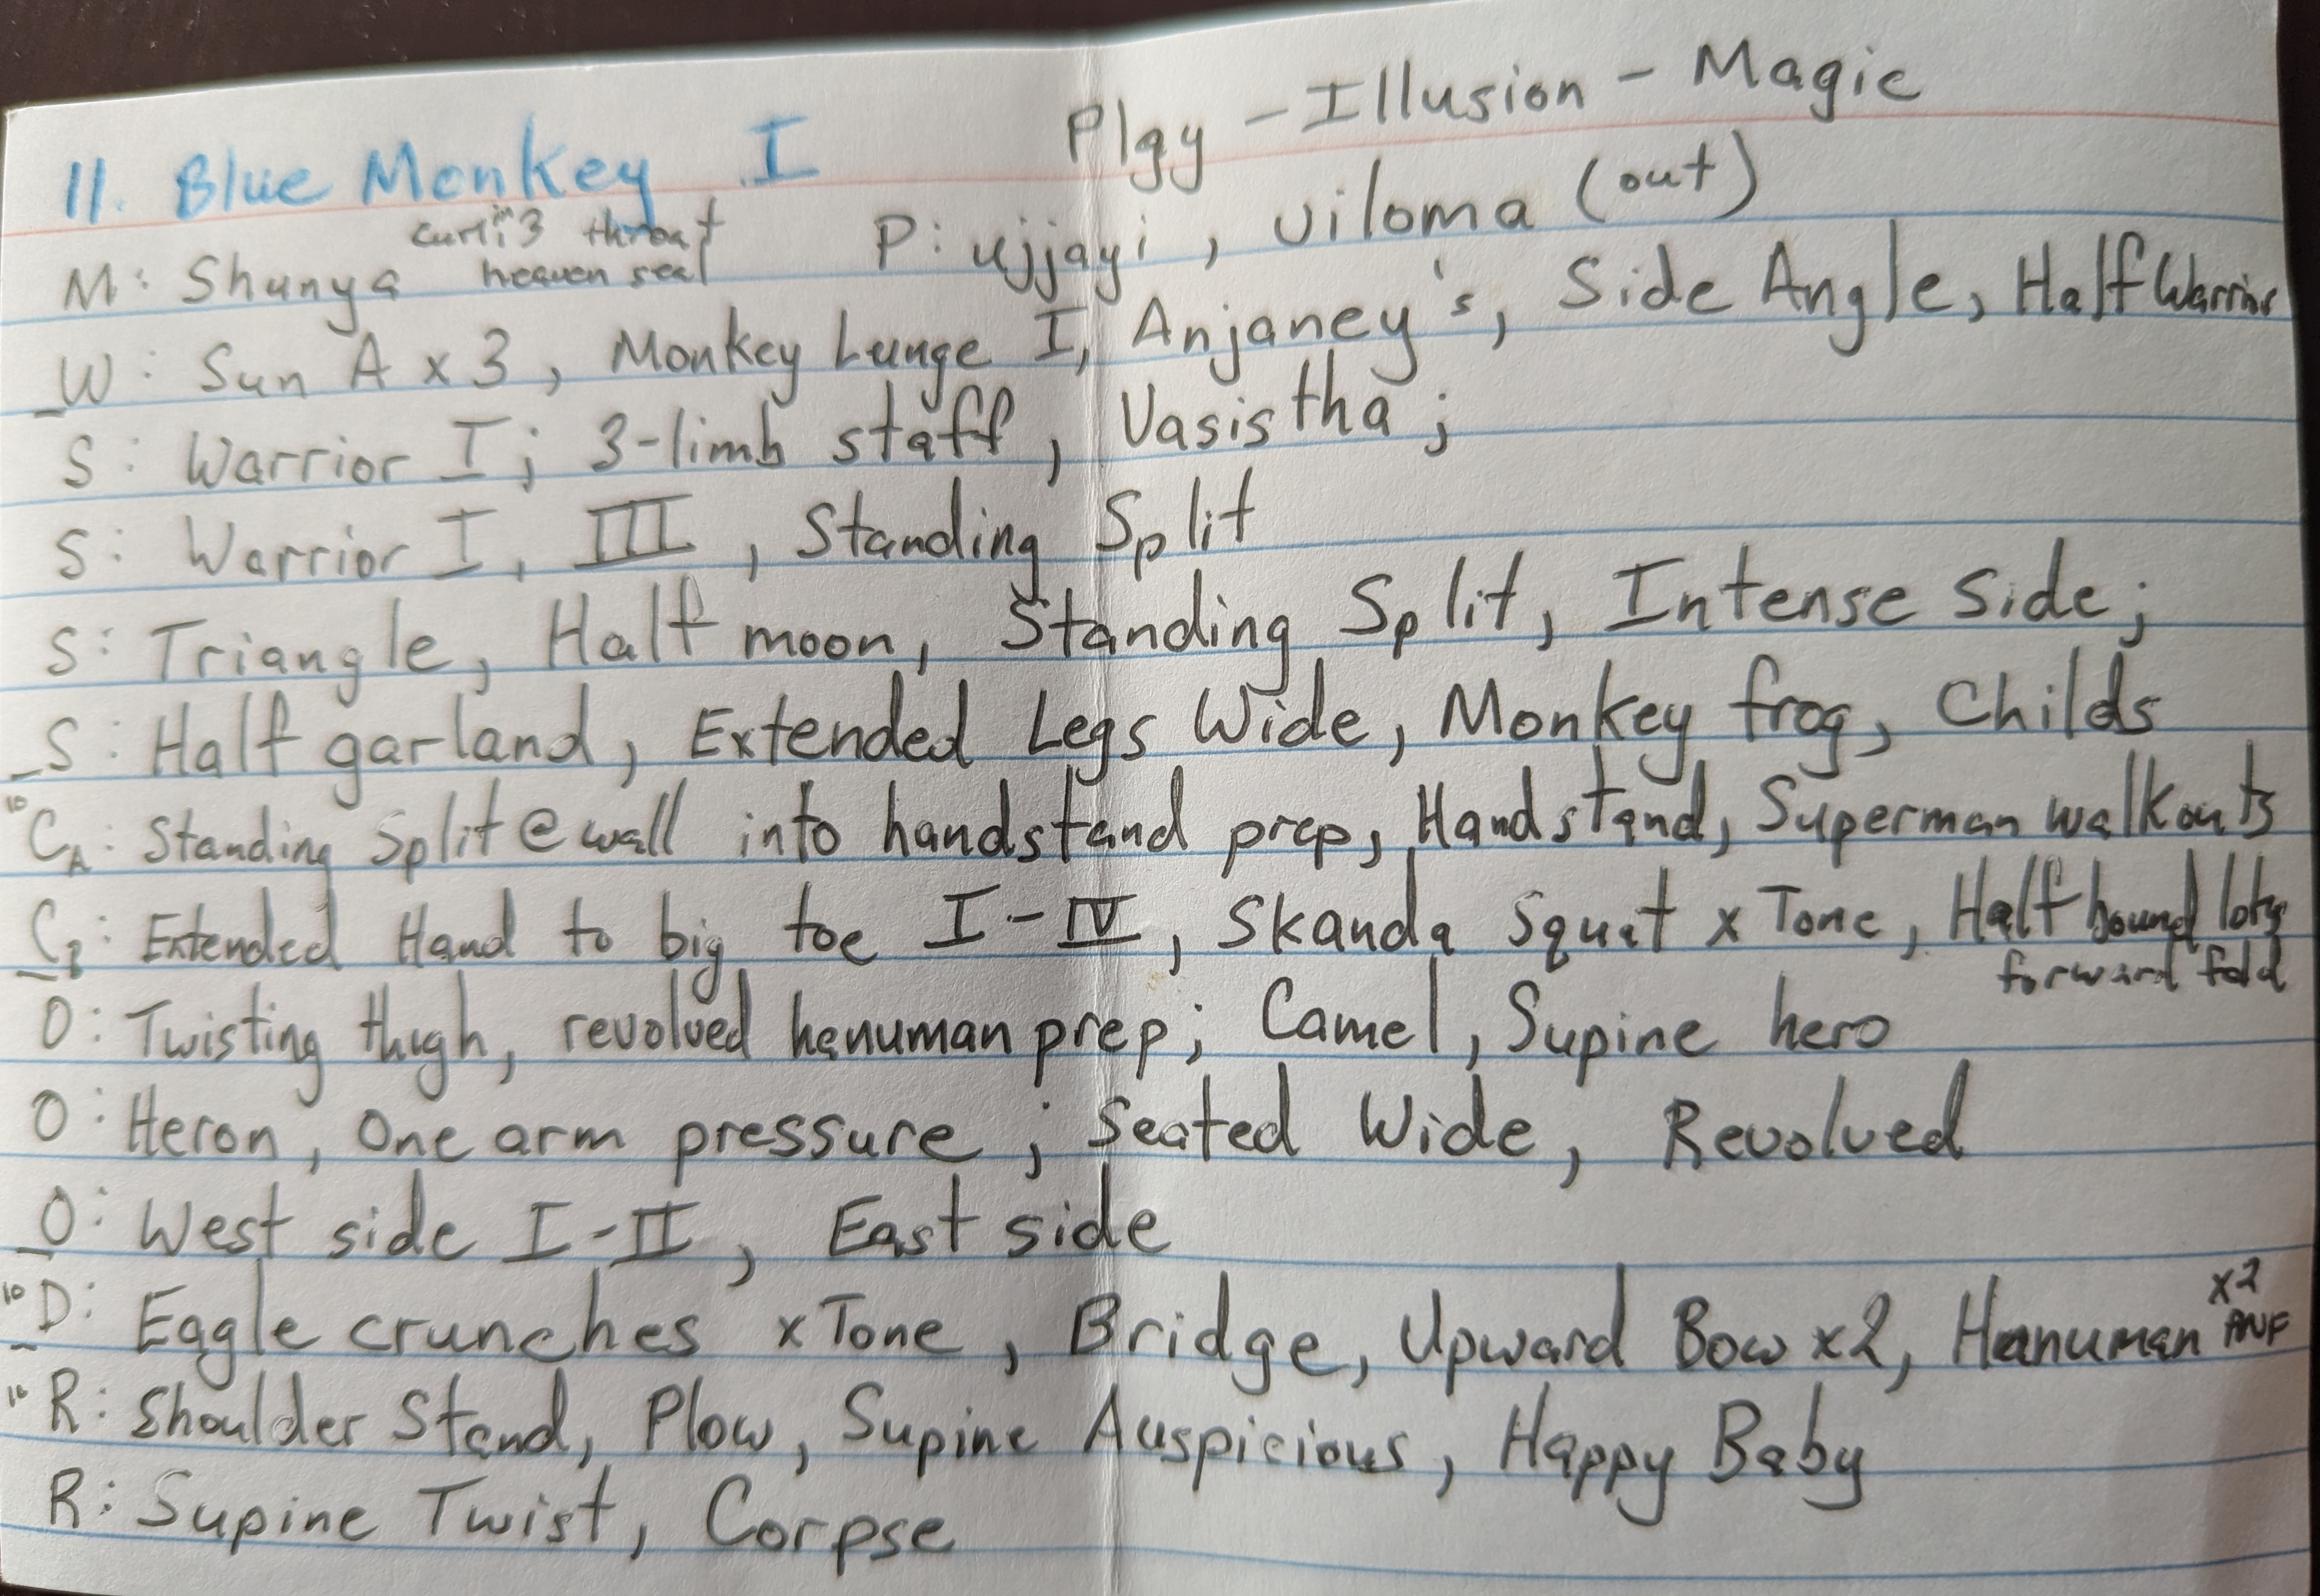 11. Blue Monkey I Play - Illusion - Magic
M: Shunya curl in 3 throat heaven seal P: ujjayi, viloma (out)
W: Sun A x 3, Monkey Lunge I, Anjaney's, Side Angle, Half Warrior
S: Warrior I; 3-limb staff, Vasistha;
S: Warrior I, III, Standing Split
S: Triangle, Half moon, Standing Split, Intense Side;
S: Half garland, Extended Legs Wide, Monkey frog, Childs
10 CA: Standing Split @ wall into handstand prep, Handstand, Superman walkouts
CB: Extended Hand to big toe I-IV, Skanda Squat x Tone, Half bound lotus forward fold
O: Twisting thigh, revolved hanuman prep; Camel, Supine hero
O: Heron, One arm pressure; Seated Wide, Revolved
O: West side I-II, East side
10 D: Eagle crunches x Tone, Bridge, Upward Bow x2, Hanuman x2 PNF
10 R: Shoulder Stand, Plow, Supine Auspicious, Happy Baby
R: Supine Twist, Corpse